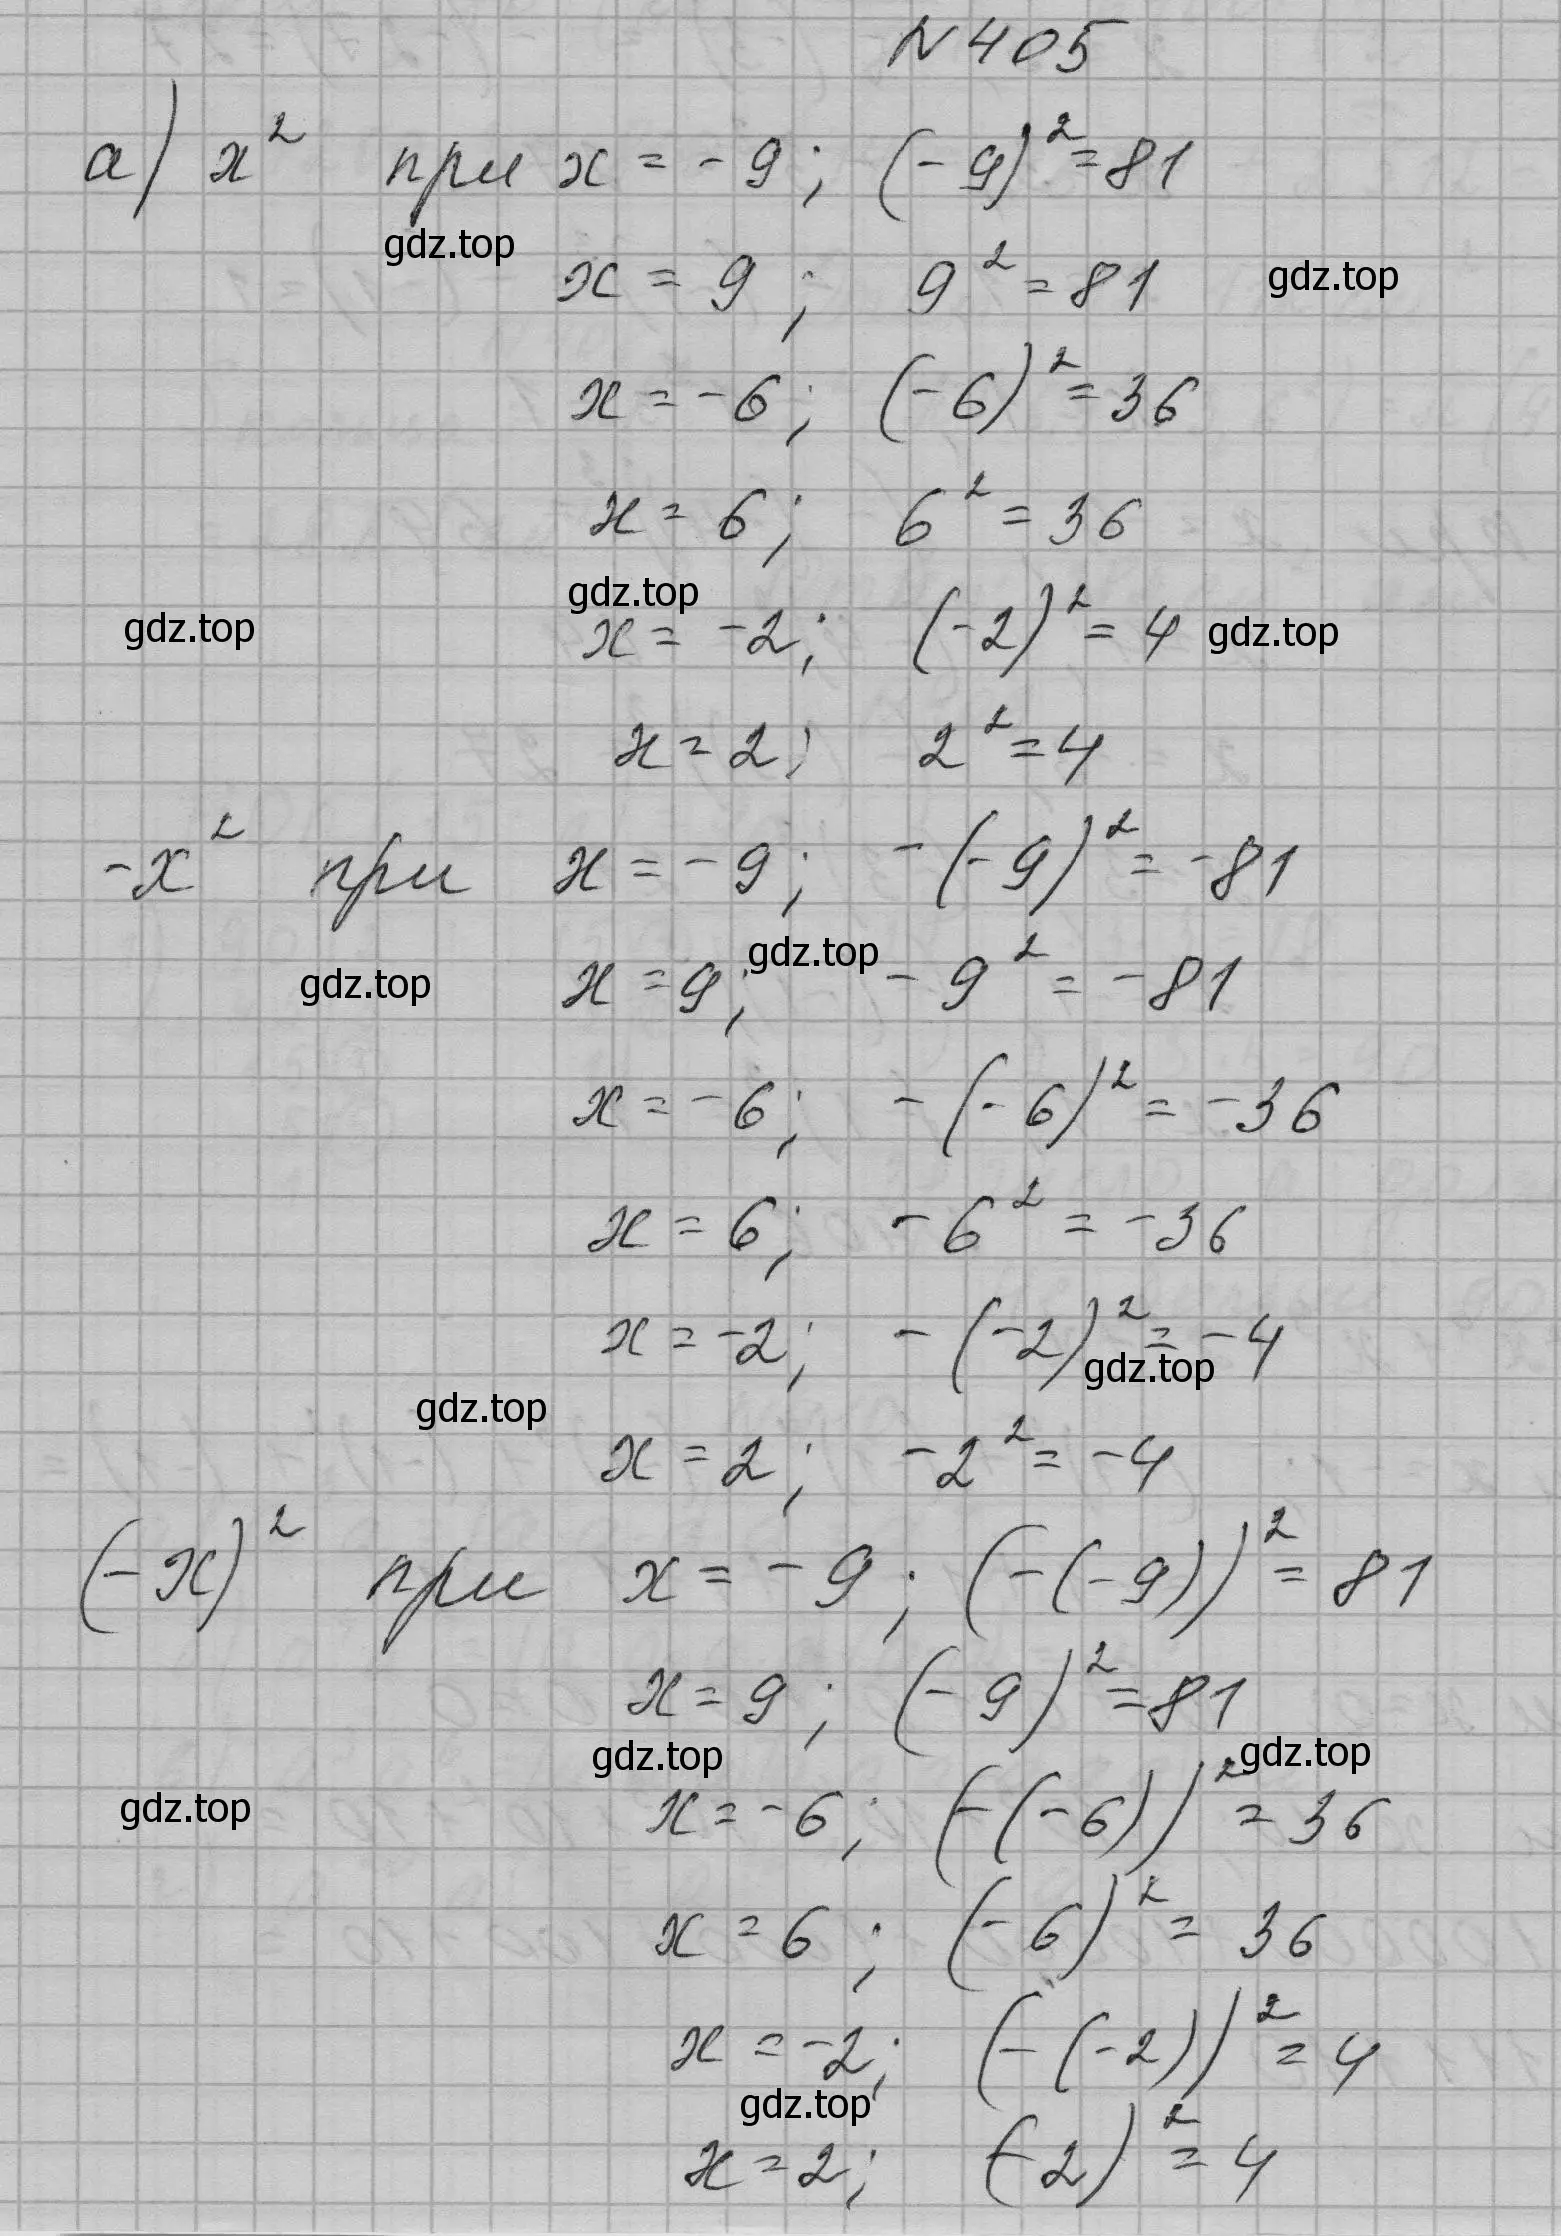 N 405
а) x² при x = -9; (-9)² = 81
gdz.top
x = 9; 9² = 81 gdz.top
x = -6; (-6)² = 36
x = 6; 6² = 36
gdz.top
gdz.top x = -2; (-2)² = 4 gdz.top
x = 2; 2² = 4
-x² при x = -9; -(-9)² = -81
gdz.top
gdz.top x = 9; -9² = -81
x = -6; -(-6)² = -36
x = 6; -6² = -36
x = -2; -(-2)² = -4
gdz.top
gdz.top
x = 2; -2² = -4
(-x)² при x = -9; (-(-9))² = 81
x = 9; (-9)² = 81
gdz.top gdz.top
gdz.top x = -6; (-(-6))² = 36
x = 6; (-6)² = 36
x = -2; (-(-2))² = 4
gdz.top
x = 2; (-2)² = 4